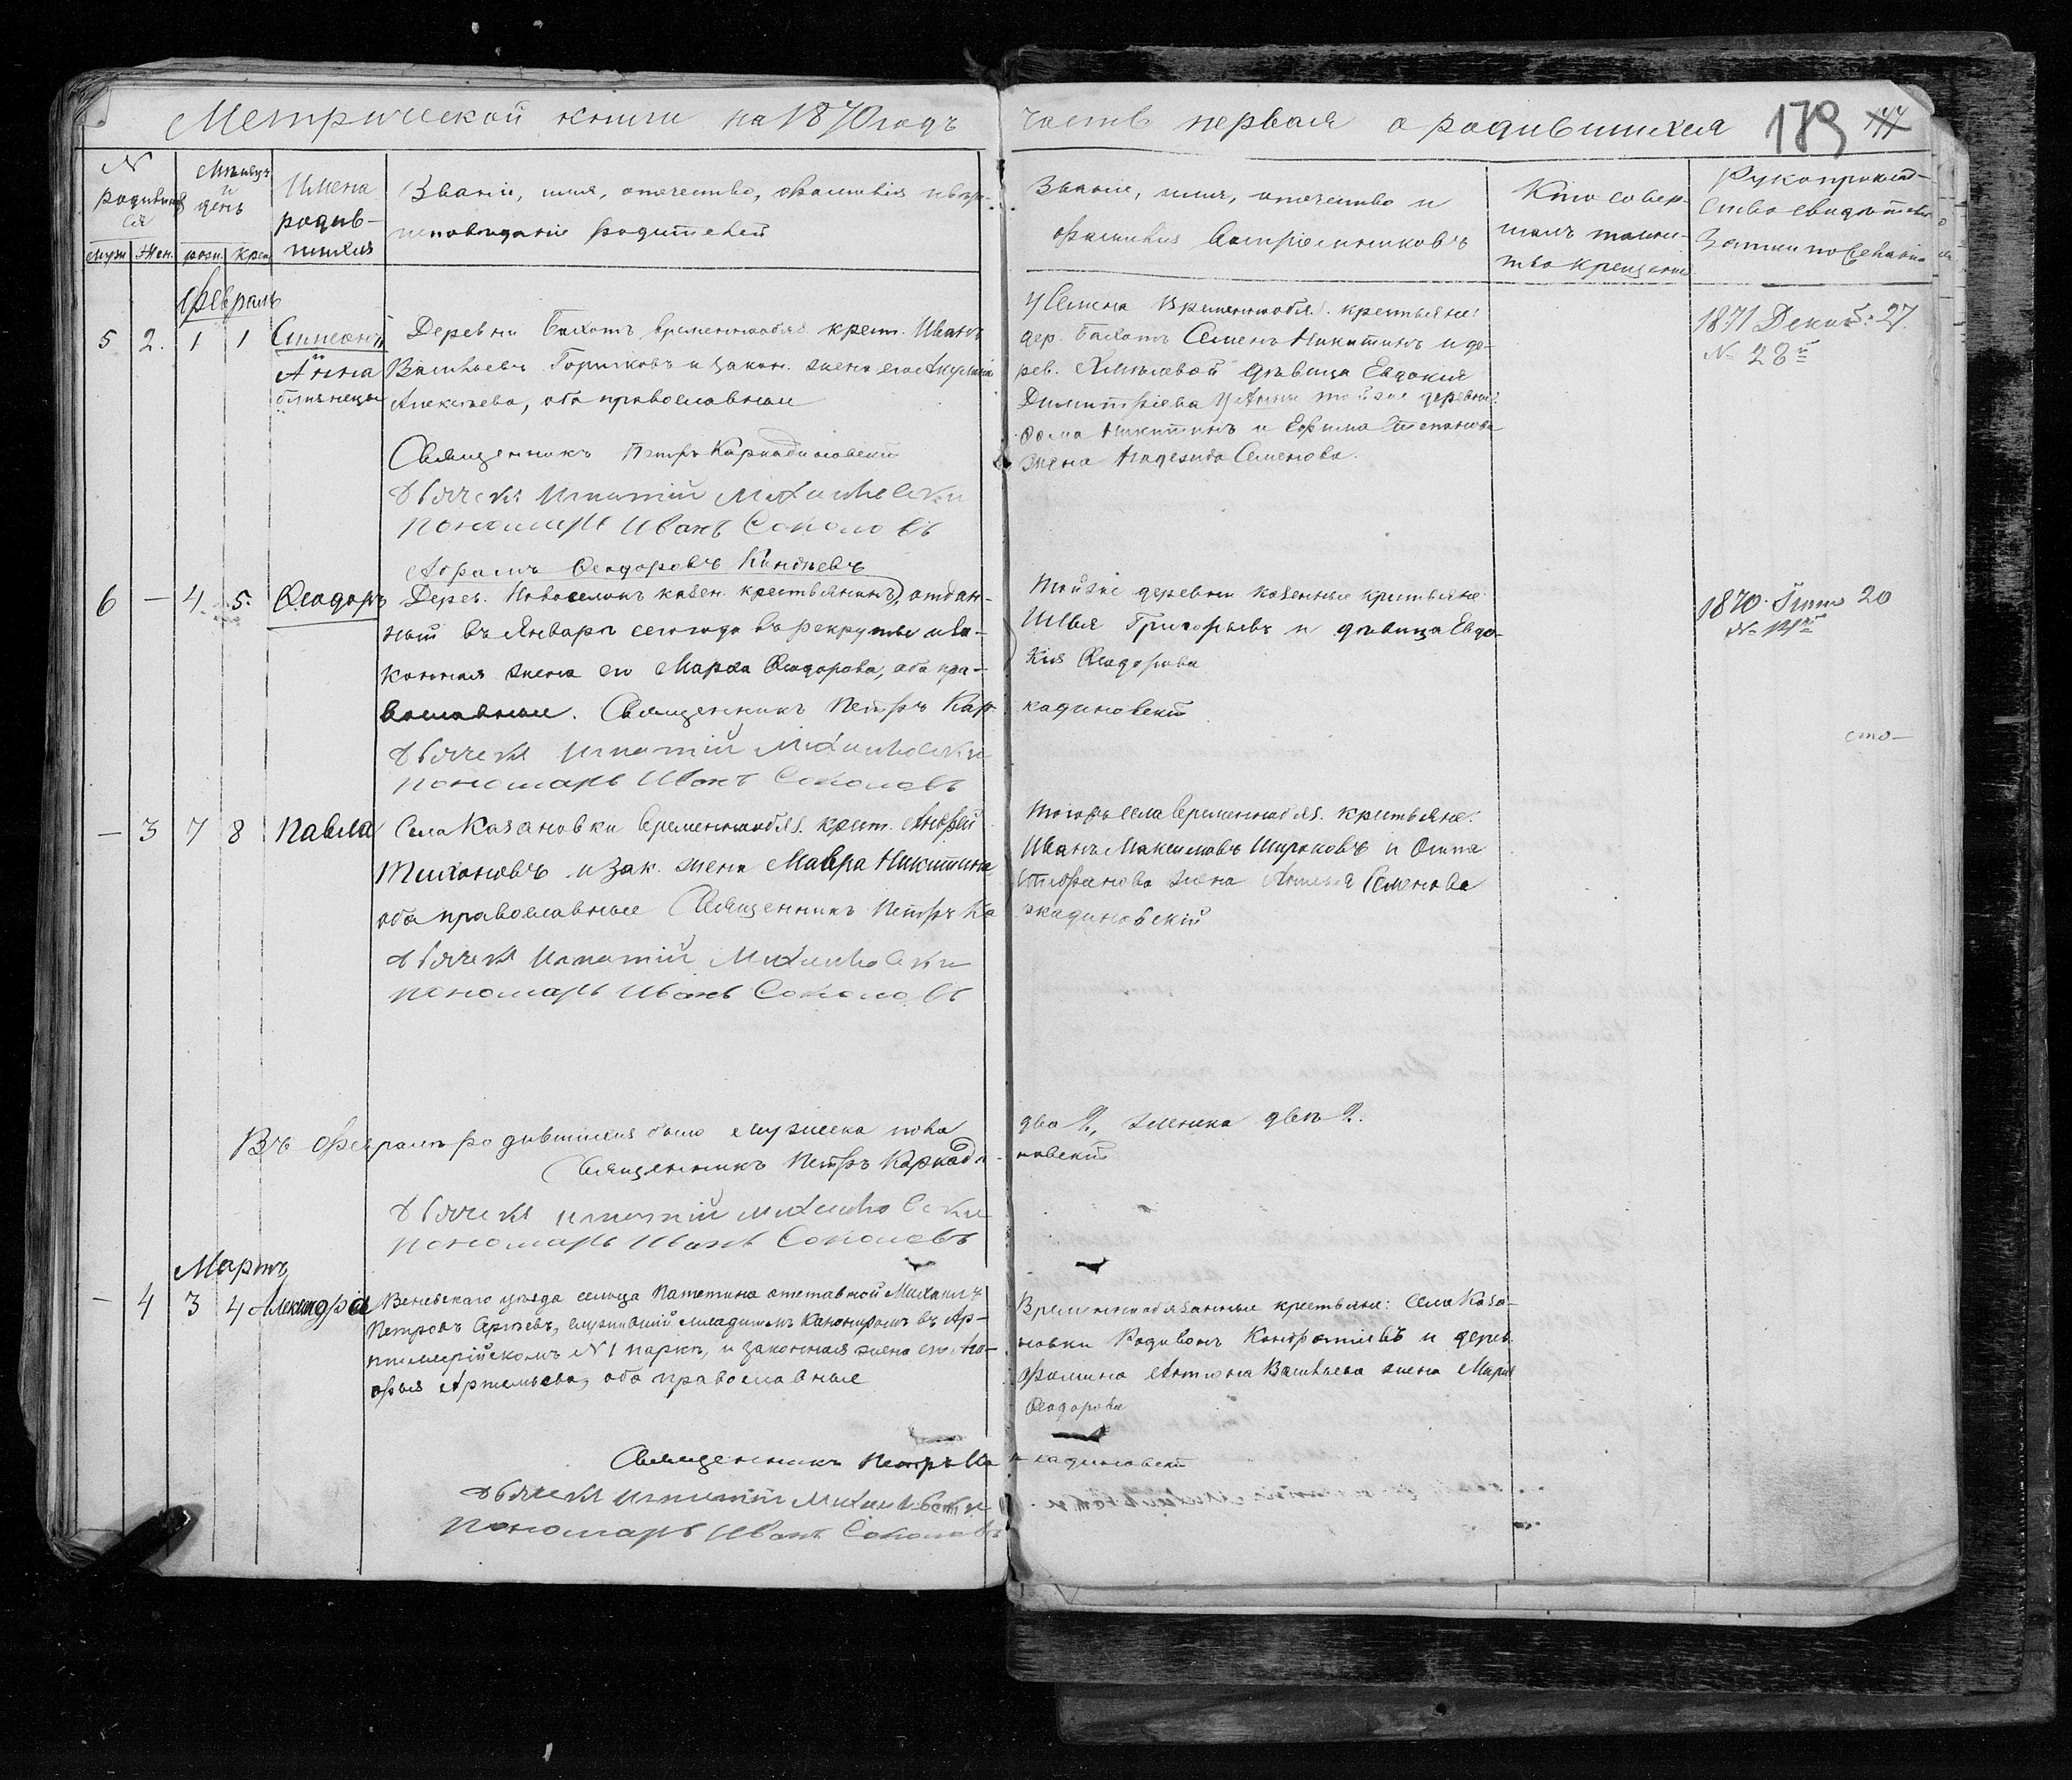 Метрической книги на 1870 годъ
часть первая о родившихся
179
№ родивших
ся
муж. Жен.
Мѣсяцъ
и
день
рожд. крещ.
Имена
родив-
шихся
Званіе, имя, отечество, фамилія и вѣро-
исповѣданіе родителей
Званіе, имя, отечество и
фамилія воспріемниковъ
Кто совер-
шалъ таин-
тво крещенія
Рукоприклад-
ство свидѣтелей
записи по желанію
Февраль
5 2. 1 1 Симеонъ
и
Анна
близнецы
Деревни временнообяз. крест. Иванъ
Васильевъ Горшковъ и закон. жена его Акулина
Алексѣева, оба православные
Священникъ Петръ Каркадиновскій
Дьячекъ Игнатій Михайловски
пономарь Иванъ Соколовъ
У Семена временнообяз. крестьяне:
дер. Семенъ Никитинъ и де-
рев. дѣвица Евдокия
Димитріева У Анны той же деревни:
Фома Никитинъ и Ефима Степанова
жена Надежда Семенова.
1871 Декаб. 27.
№ 28й
Абрамъ Феодоровъ
6 — 4. 5. Феодоръ
Дерев. Новоселокъ казен. крестьянинъ, отдан-
ный въ Январѣ сего года въ рекруты и за-
конная жена его Марфа Феодорова, оба пра-
вославные. Священникъ Петръ Кар-
кадиновскій
Дьячекъ Игнатій Михайловски
пономарь Иванъ Соколовъ
Тойже деревни казенные крестьяне
Илья Григорьевъ и дѣвица Евдо-
кия Феодорова
1870 20
— 3 7 8 Павла
Села Казановки временнообяз. крест. Андрей
Тихоновъ и зак. жена Мавра Никитина
оба православные Священникъ Петръ Ка
ркадиновскій
Дьячекъ Игнатій Михайловски
пономарь Иванъ Соколовъ
Тогожъ села временнообяз. крестьяне:
Иванъ Максимовъ Ширяковъ и Осипа
Стефанова жена Семенова
Въ Февралѣ родившихся было мужеска пола
два 2, женска двѣ 2.
Священникъ Петръ Каркади-
новскій
Дьячекъ Игнатій Михайловски
пономарь Иванъ Соколовъ
Мартъ
— 4 3 4 Александра
Веневскаго уѣзда сельца отставной Михаилъ
Петровъ служившій младшимъ Канониромъ въ Ар-
тиллерійскомъ № 1 паркѣ, и законная жена его
Артемьева, оба православные
Временнообязанные крестьяне: села Каза-
новки Родивонъ Кондратіевъ и дерев.
Фомина Антона Васильева жена Марія
Феодорова
Священникъ Петръ Ка
ркадиновскій
Дьячекъ Игнатій Михайловски
пономарь Иванъ Соколовъ